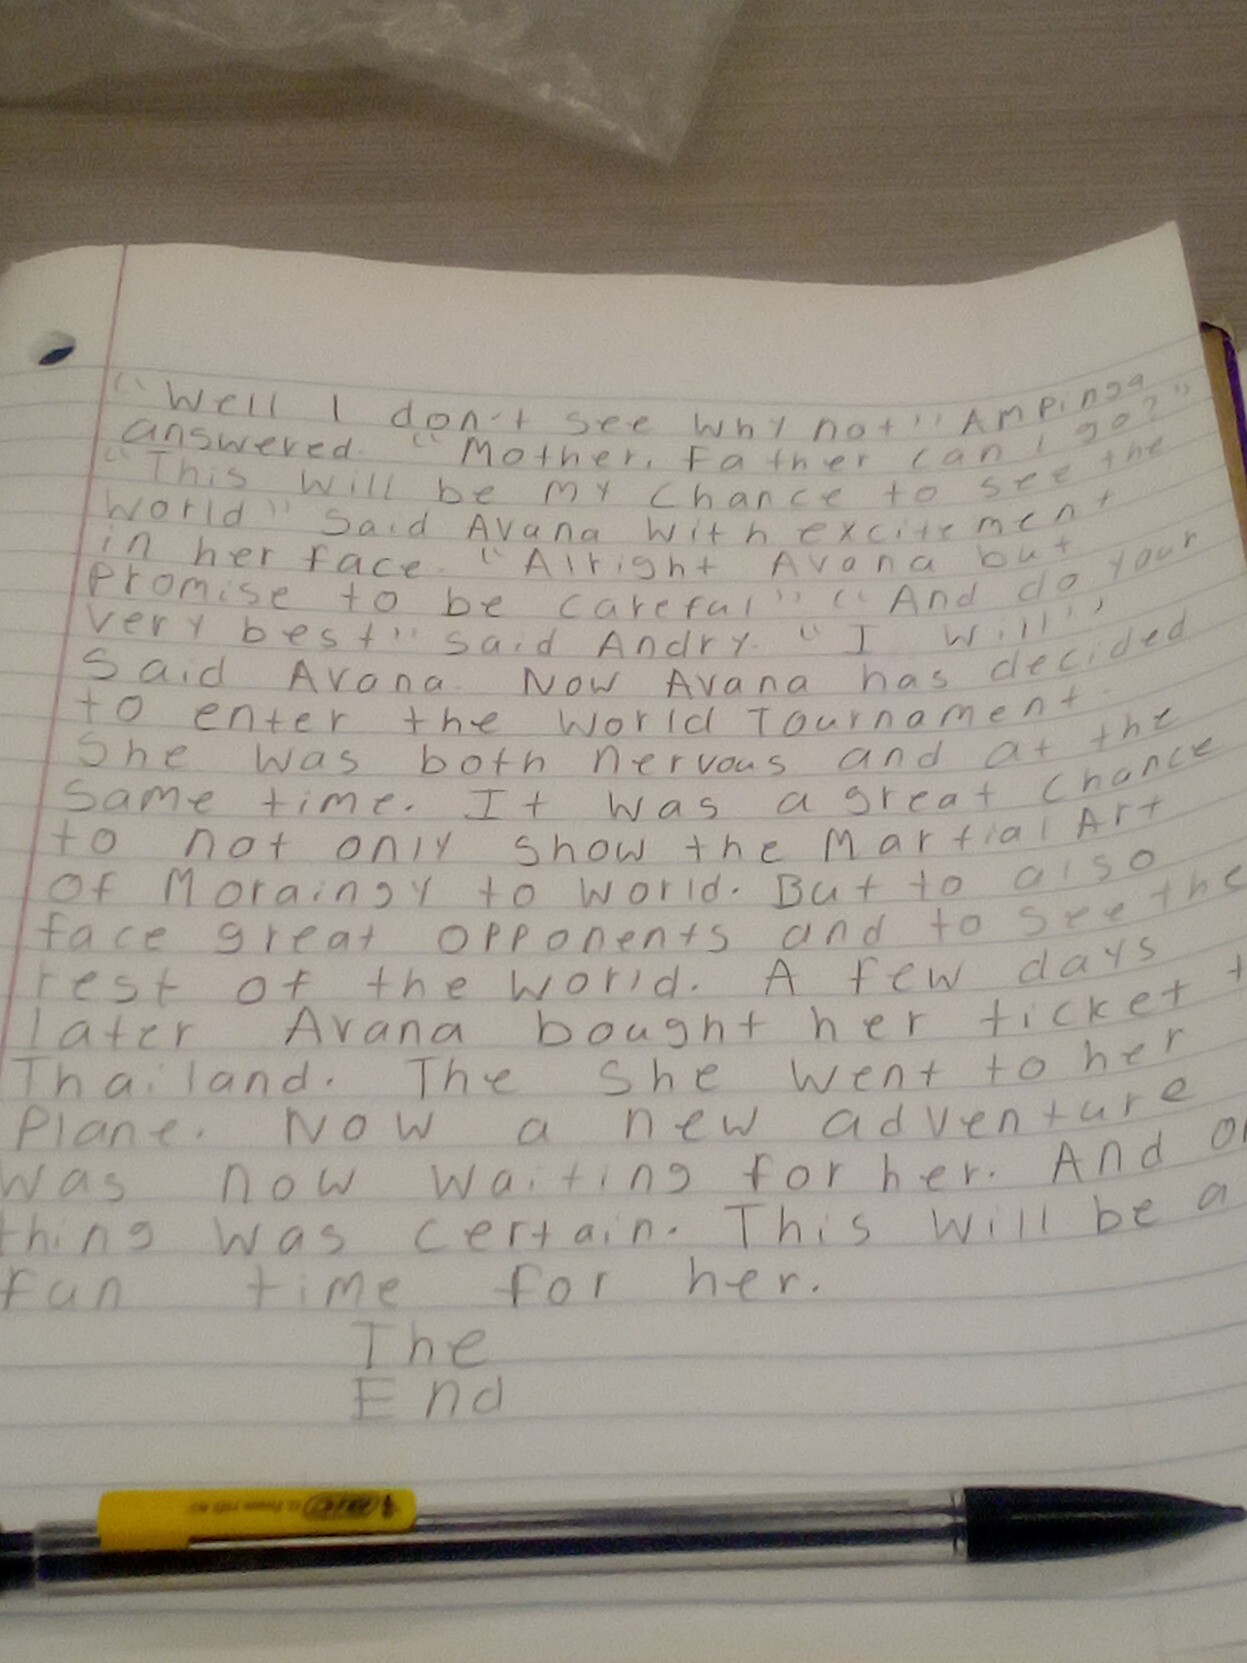 "Well I don't see why not" Ampinga
answered. "Mother, Father can I go?"
"This will be my chance to see the
world" said Avana with excitement
in her face. "Alright Avana but
promise to be careful" "And do your
very best" said Andry. "I will",
said Avana. Now Avana has decided
to enter the World Tournament.
She was both nervous and at the
same time. It was a great chance
to not only show the Martial Art
of Moraingy to world. But to also
face great opponents and to see the
rest of the world. A few days
later Avana bought her ticket
Thailand. The she went to her
plane. Now a new adventure
was now waiting for her. And
thing was certain. This will be a
fun time for her.
The
End
BIC